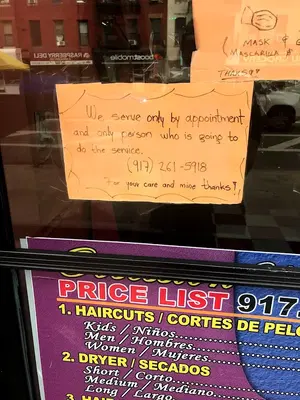 MASK & G
MASCARILLA &
THANKS!!
RASPBERRY DELI
boost mobile
We serve only by appointment
and only person who is going to
do the service.
(917) 261-5918
For your care and mine thanks!
PRICE LIST 917
1. HAIRCUTS / CORTES DE PELO
Kids / Niños
Men / Hombres
Women / Mujeres
2. DRYER / SECADOS
Short / Corto
Medium / Mediano
Long / Largo
3. HA